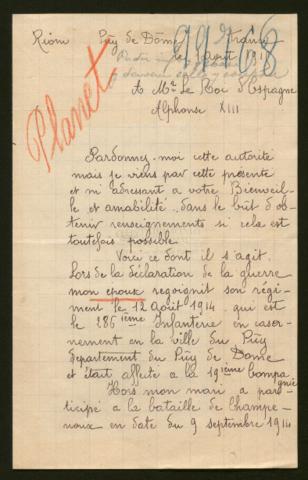 Riom Puy de Dôme France
le août 191
11968
Planet
A Mr Le Roi d'Espagne
Alphonse XIII
Pardonnez-moi cette autorité
mais je viens par cette présente
et m'adressant a votre Bienveil-
le et amabilité, dans le but d'ob-
tenir renseignements si cela est
toutefois possible.
Voici ce dont il s'agit.
Lors de la déclaration de la guerre
mon epoux regoignit son régi-
ment le 12 Août 1914. qui est
le 286 ième Infanterie en caser-
nement en la ville du Puy
département du Puy de Dome
et était affecté a la 19ième compa
gnie
Hors mon mari a par-
ticipé a la bataille de Champe-
noux en date du 9 septembre 1914